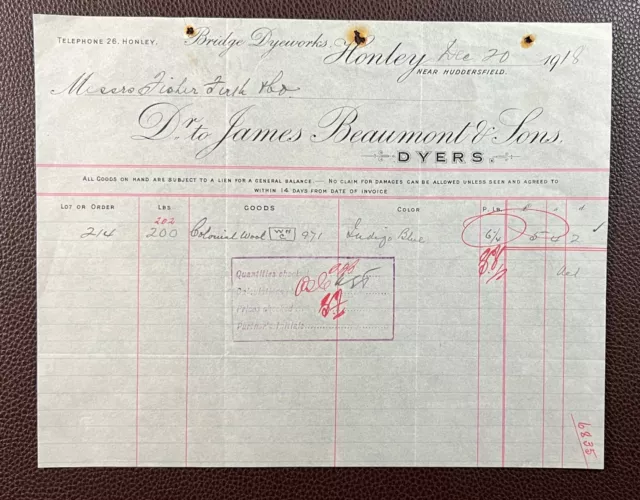 Telephone 26. Honley.
Bridge Dyeworks,
Honley Dec 20 1918
near Huddersfield.
Messrs Fisher Firth & Co
Dr. to James Beaumont & Sons,
DYERS.
All Goods on hand are subject to a lien for a general balance — No claim for damages can be allowed unless seen and agreed to
within 14 days from date of invoice
Lot or Order Lbs Goods Color P. Lb. £ s d
202
214 200 Colonial Wool W H C 971 Indigo Blue 6¼ 5 4 2
Quantities check
Calculations
Prices
Partner's Initials
6835